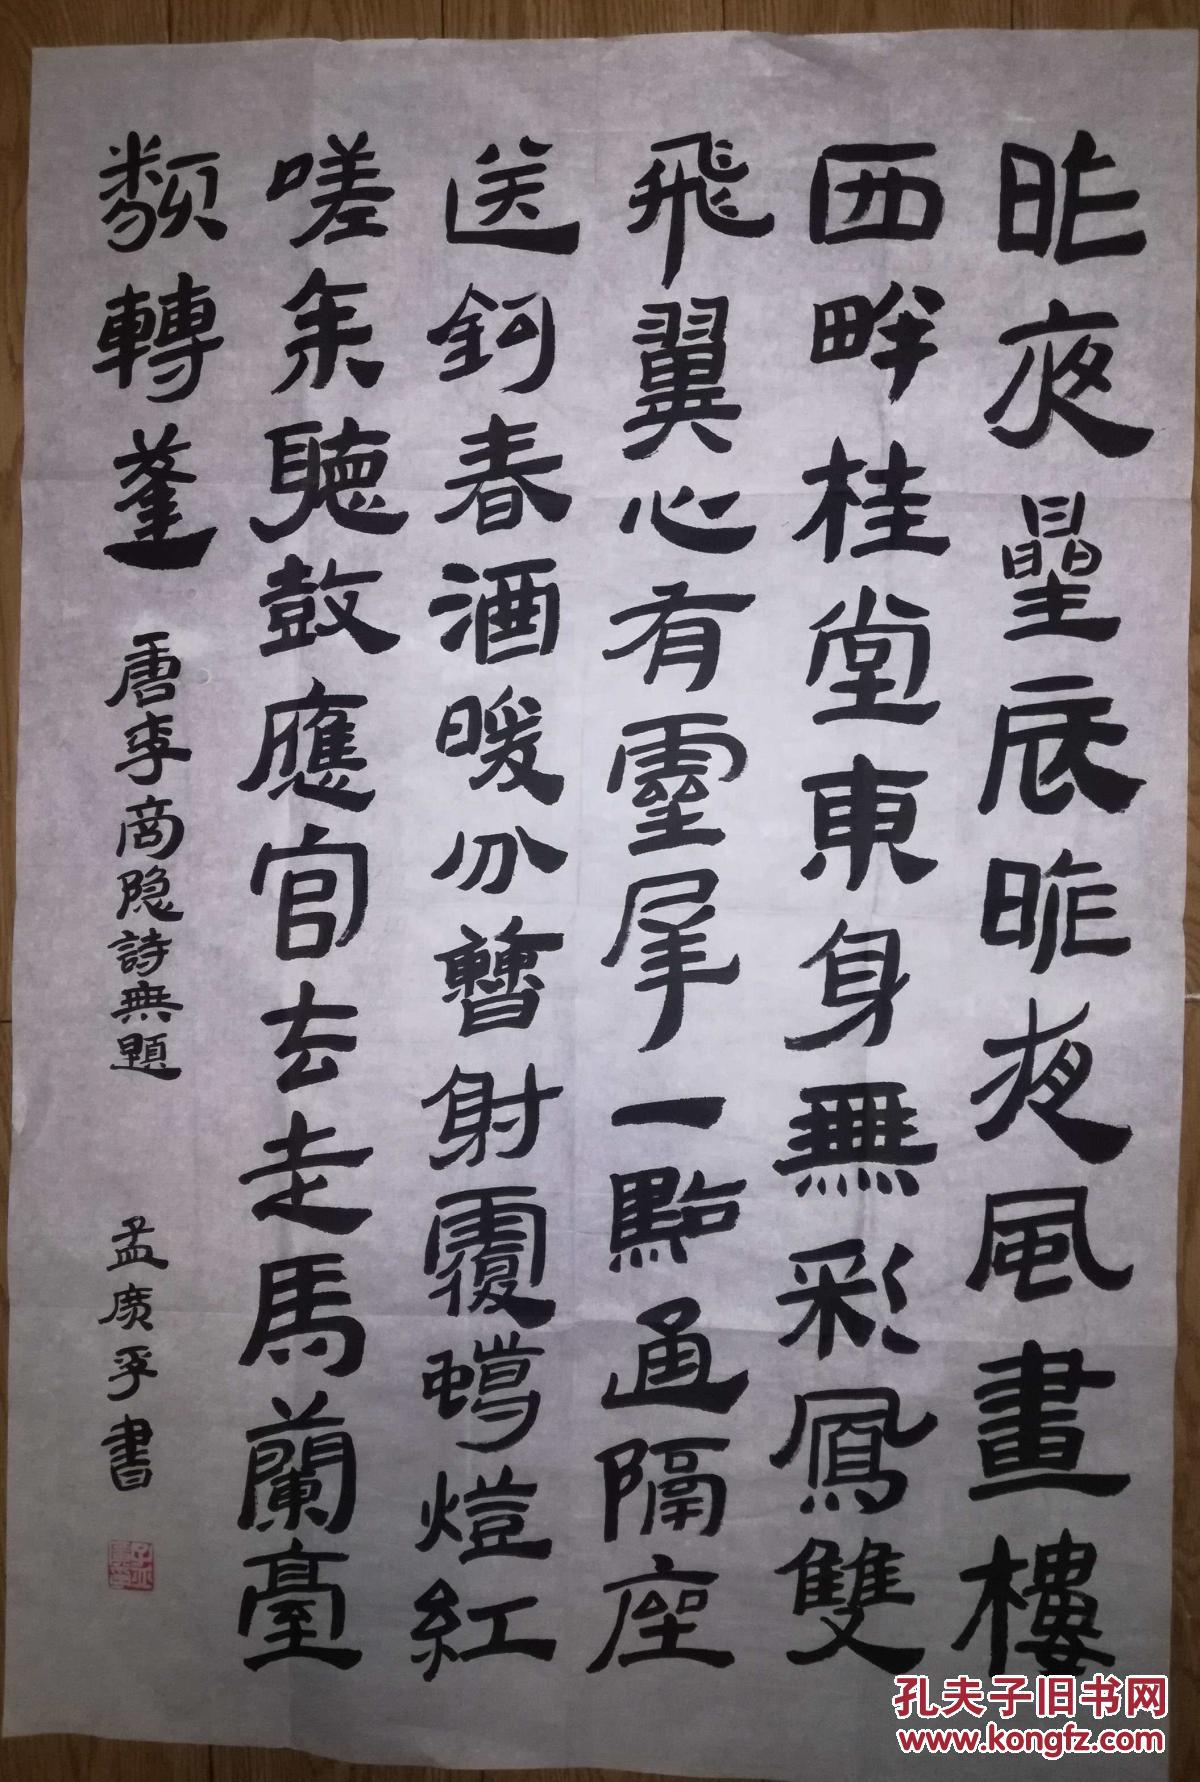 昨夜曐辰昨夜風畫樓
西畔桂堂東身無彩鳳雙
飛翼心有靈犀一點通隔座
送鉤春酒暖分曹射覆蠟燈紅
嗟余聽鼓應官去走馬蘭臺
類轉蓬 唐李商隐詩無題 孟廣平書
孔夫子旧书网
www.kongfz.com